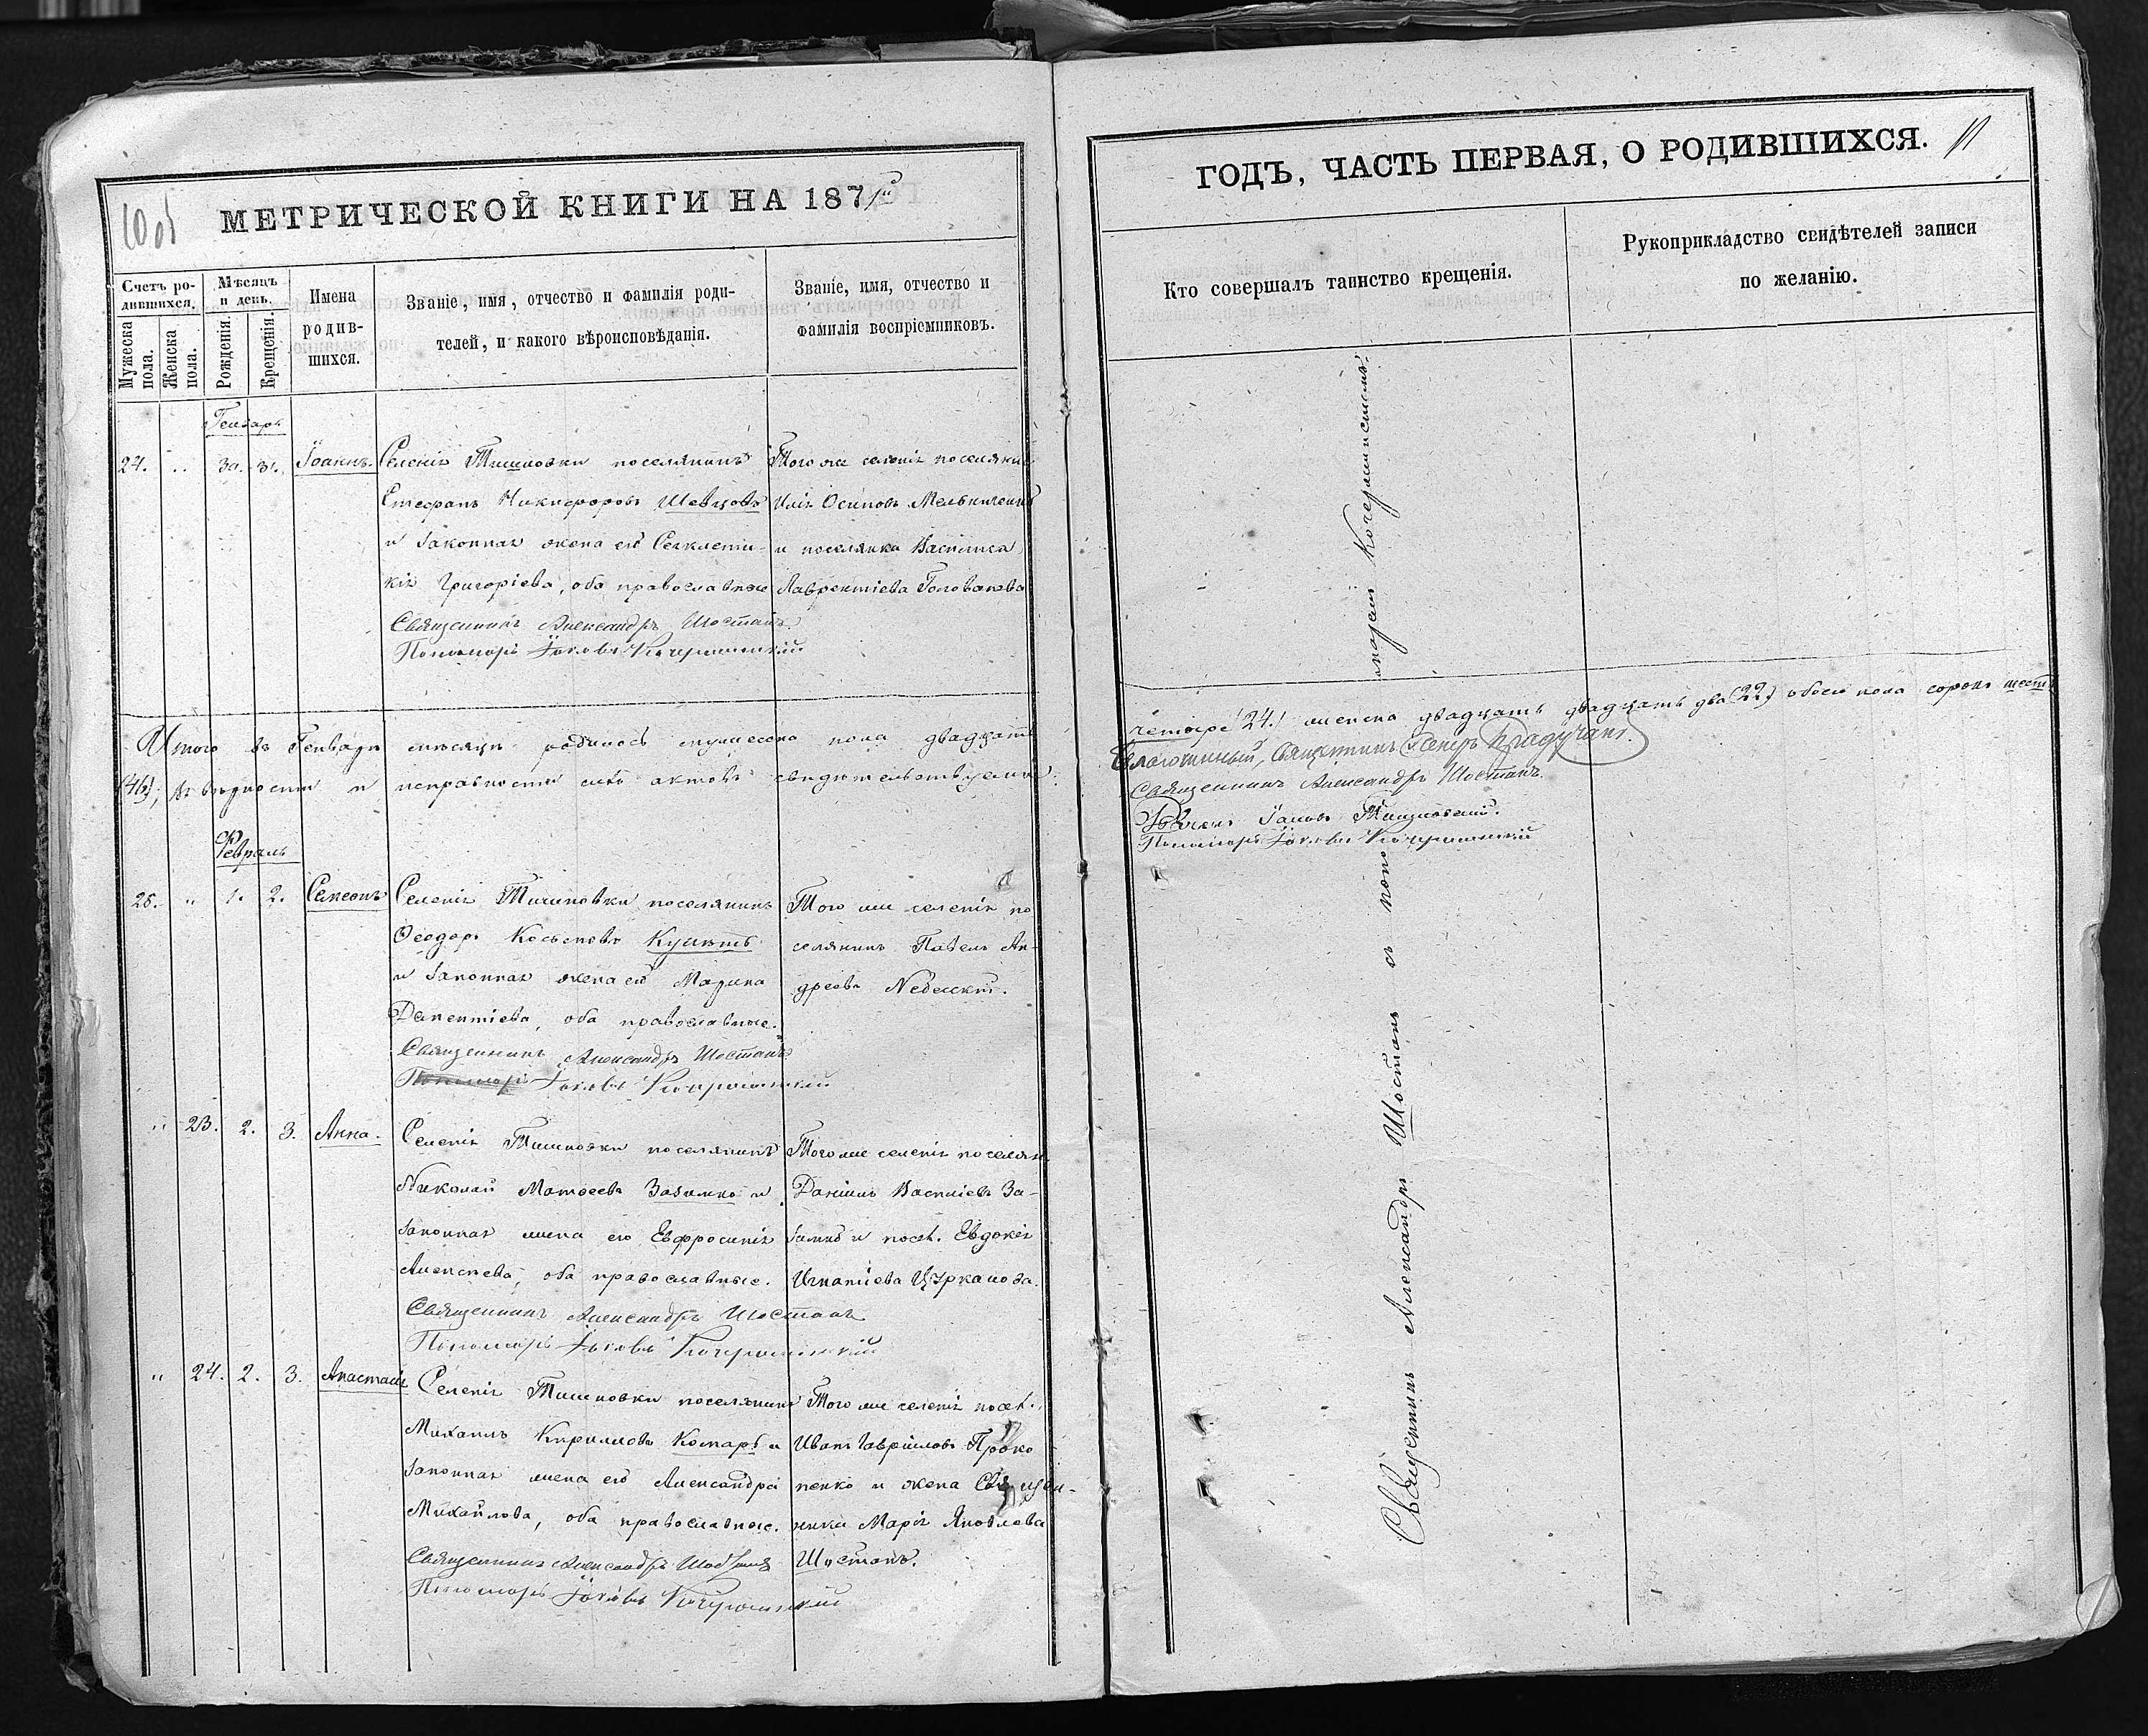 МЕТРИЧЕСКОЙ КНИГИ НА 1871й
Счетъ ро-
дившихся.
Мужеска
пола.
Женска
пола.
Мѣсяцъ
и день.
Рожденія.
Крещенія.
Имена
родив-
шихся.
Званіе, имя, отчество и фамилія роди-
телей, и какого вѣроисповѣданія.
Званіе, имя, отчество и
фамилія воспріемниковъ.
Генварь
24. " 30. 31. Іоаннъ.
Селенія Тишковки поселянинъ
Стефанъ Никифоровъ Шевцовъ
и законная жена его
Григоріева, оба православные
Священникъ Александръ Шостакъ.
Пономарь Іаковъ
Того же селенія поселянинъ
Илія Осиповъ
и поселянка Василиса
Лаврентіева Голованова
Итого въ Генварѣ мѣсяцѣ родилось мужеска пола двадцать
(46); въ вѣрности и исправности сихъ актовъ свидѣтельствуемъ:
Февраль
25. " 1. 2. Симеонъ
Селенія Тишковки поселянинъ
Ѳеодоръ
и законная жена его Марина
оба православные.
Священникъ Александръ Шостакъ
Пономарь Іаковъ
Того же селенія по
селянинъ Павелъ Ан-
дреевъ
" 23. 2. 3. Анна.
Селенія Тишковки поселянинъ
Николай Матѳеевъ Зазимко и
законная жена его Евфросинія
Алексѣева, оба православные.
Священникъ Александръ Шостакъ
Пономарь Іаковъ
Того же селенія поселян.
Даніилъ Василіевъ За-
зимко и посел. Евдокія
Игнатіева Цурканова.
" 24. 2. 3. Анастасія
Селенія Тишковки поселянинъ
Михаилъ Кирилловъ Комаръ и
законная жена его Александра
Михайлова, оба православные.
Священникъ Александръ Шостакъ
Пономарь Іаковъ
Того же селенія посел.
Иванъ Гавріиловъ Проко
пенко и жена Священ-
ника Марія Яковлева
Шостакъ.
ГОДЪ, ЧАСТЬ ПЕРВАЯ, О РОДИВШИХСЯ. 11
Кто совершалъ таинство крещенія.
Рукоприкладство свидѣтелей записи
по желанію.
четыре (24.) женска двадцать двадцать два (22) обоего пола сорокъ шесть
Благочинный, Священникъ Петръ
Священникъ Александръ Шостакъ.
Дьячокъ Іаковъ
Пономарь Іаковъ
Священникъ Александръ Шостакъ съ пономаремъ